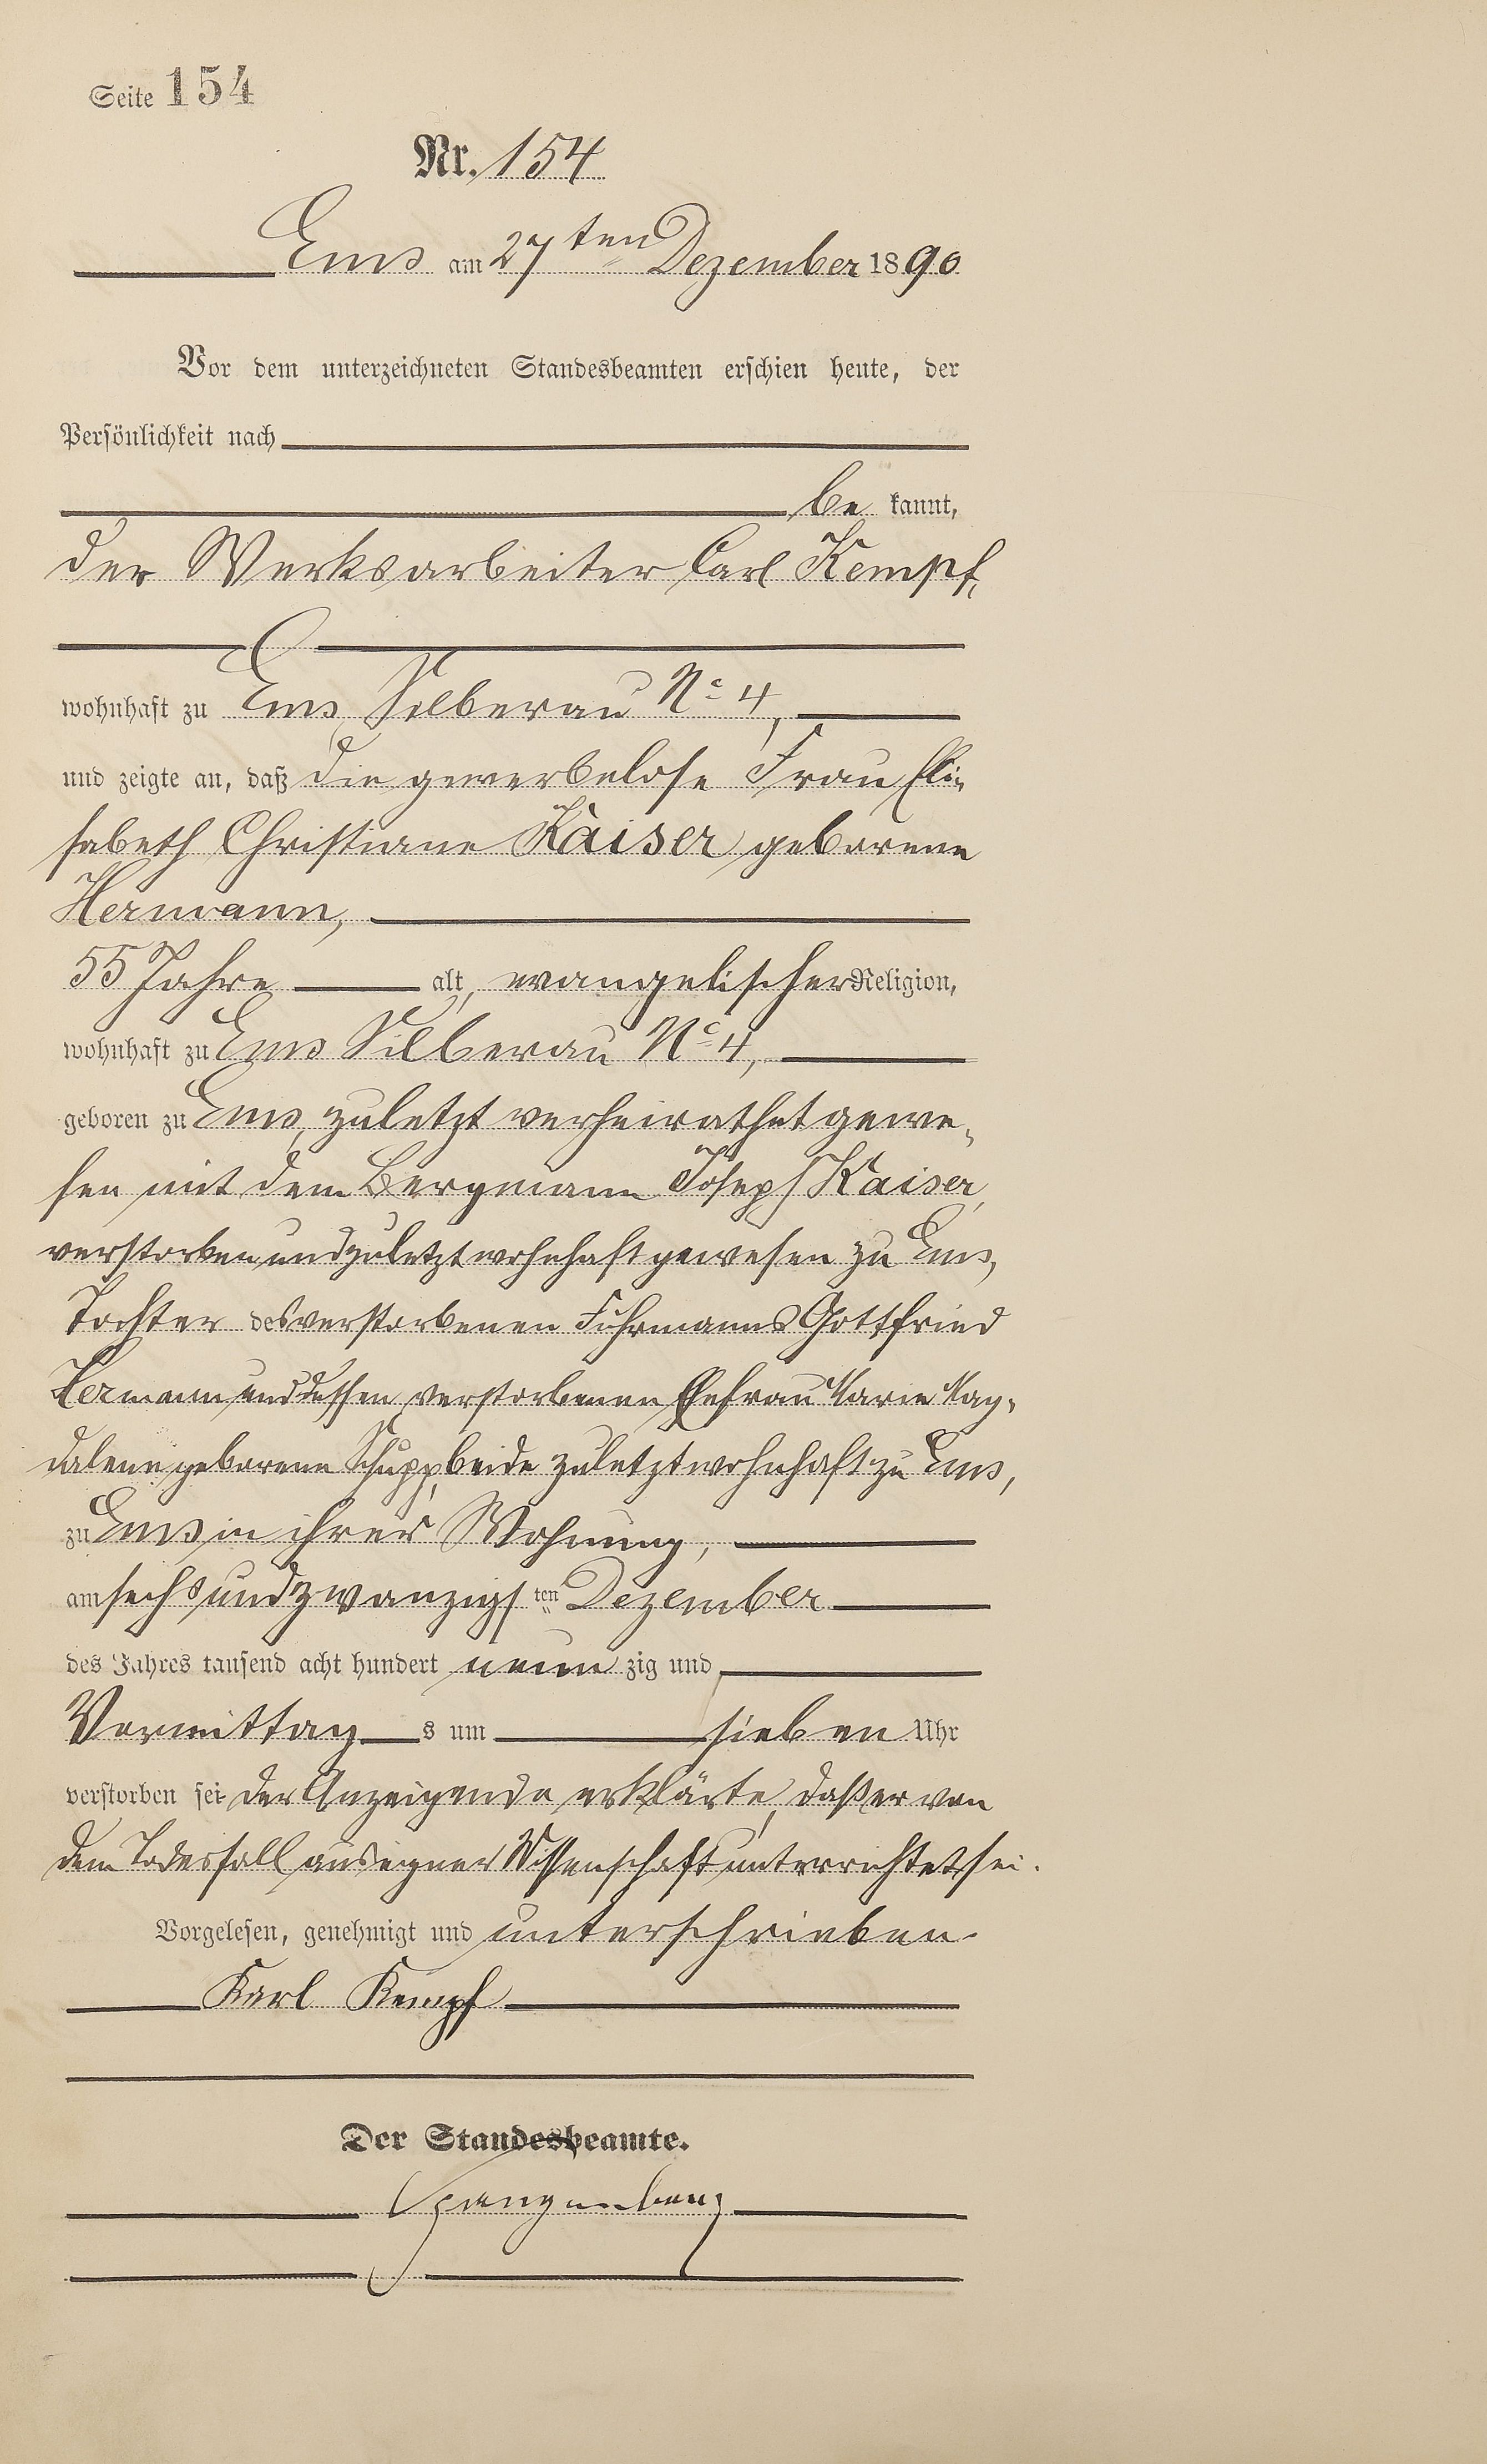 Seite 154
Nr. 154
Ems am 27ten Dezember 1890
Vor dem unterzeichneten Standesbeamten erschien heute, der
Persönlichkeit nach
be kannt,
der Werksarbeiter Carl Kempf,
wohnhaft zu Ems, Silberau No 4,
und zeigte an, daß die gewerbelose Frau Eli-
sabeth Christiane Kaiser geborene
Hermann,
55 Jahre alt, evangelischer Religion,
wohnhaft zu Ems Silberau No 4,
geboren zu Ems, zuletzt verheirathet gewe-
sen mit dem Bergmann Joseph Kaiser,
verstorben und zuletzt wohnhaft gewesen zu Ems,
Tochter des verstorbenen Fuhrmanns Gottfried
Hermann und dessen verstorbenen Ehefrau Marie Mag-
dalene geborene Schupp, beide zuletzt wohnhaft zu Ems,
zu Ems in ihrer Wohnung,
am sechsundzwanzigsten Dezember
des Jahres tausend acht hundert neun zig und
Vormittag s um sieben Uhr
verstorben sei. Der Anzeigende erklärte, daß er von
dem Todesfall aus eigner Wissenschaft unterrichtet sei.
Vorgelesen, genehmigt und unterschrieben.
Karl Kempf
Der Standesbeamte.
Spangenberg